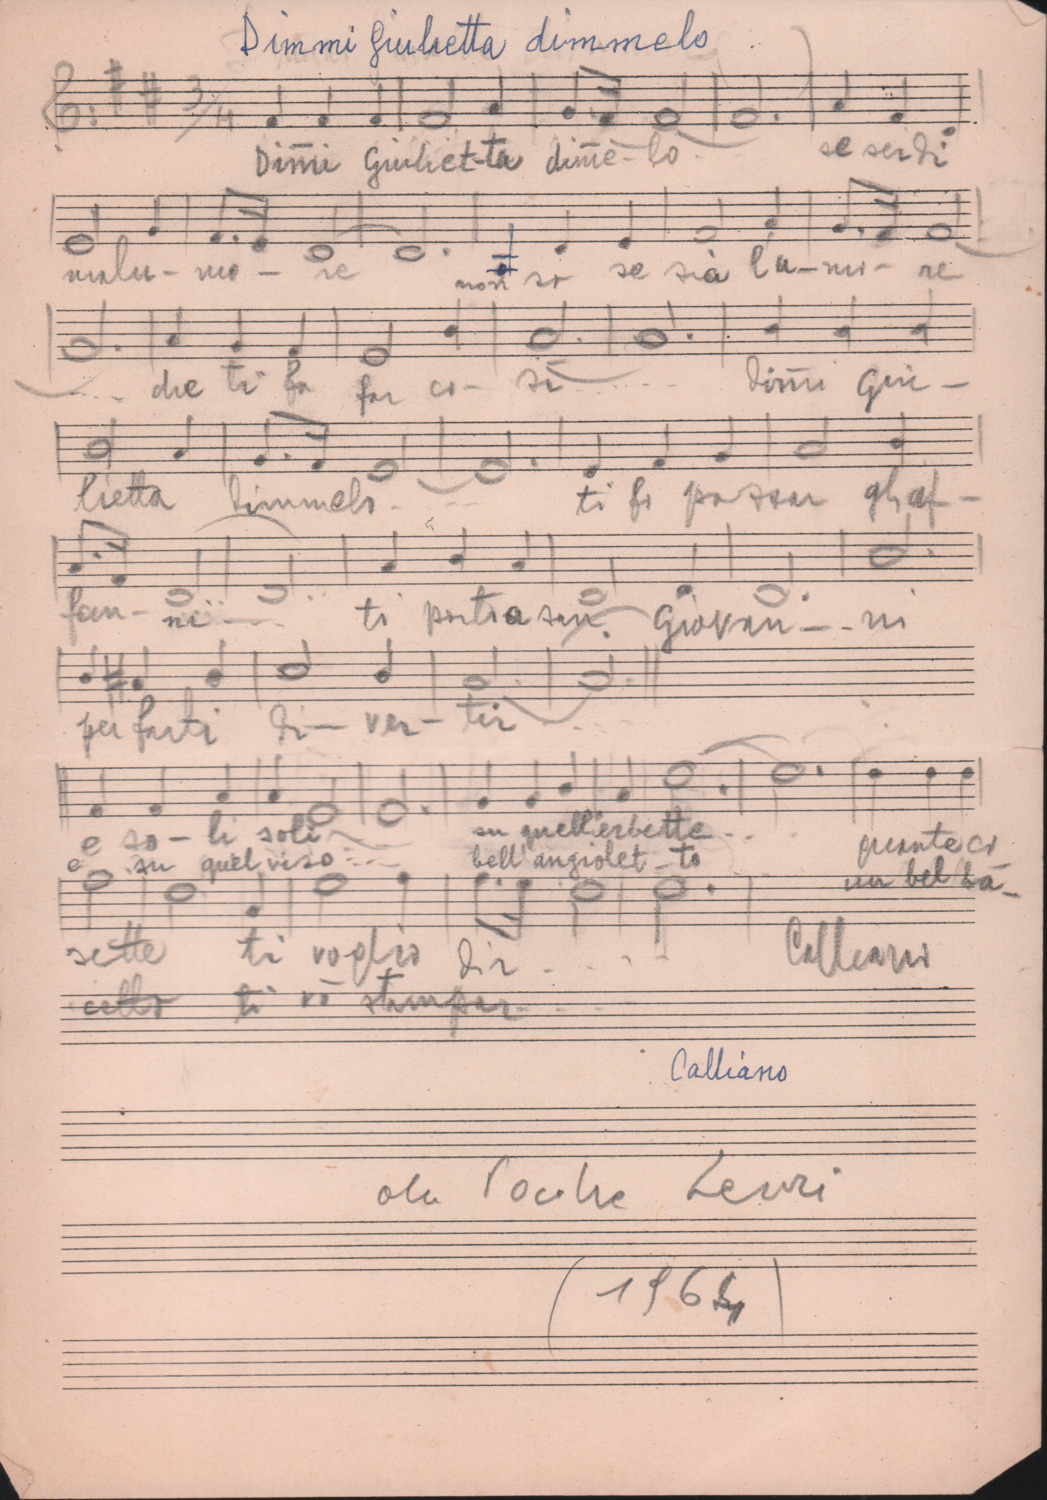 Dimmi Giulietta dimmelo
3/4
Dim̄i Giuliet-ta dim̄e-lo - se sei di
malu- mo - re non so se sia l'a-mo- re
che ti fa far co- sì - - - dim̄i Giu-
lietta dimmelo - - - ti fo passar gli af-
fan- ni - - - ti porto a san Giovan - - ni
per farti di- ver- tir - - -
e so- li soli - su quell'erbette - - quante co
e su quel viso - - - bell'angiolet-to un bel ba-
sette ti voglio dir - - - Calliano
cetto ti vo stampar - - -
Calliano
da
(196